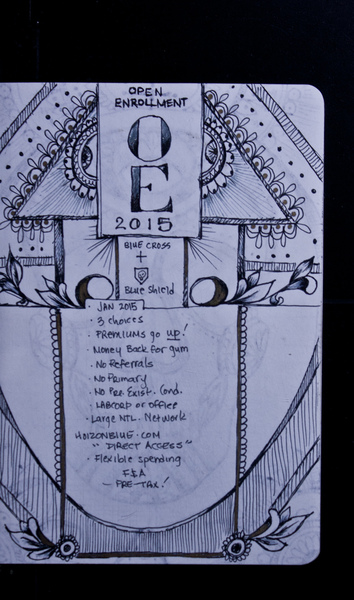 OPEN
ENROLLMENT
OE
2015
BLUE CROSS
+
Blue Shield
· JAN 2015
· 3 choices
· PREMIUMS go up!
· Money Back for gym
· No Referrals
· No Primary
· No Pre. Exist. Cond.
· LABCORP or office
· Large NTL. Network
HOIZONBLUE.COM
"DIRECT ACCESS"
· Flexible spending
FSA
— PRE-TAX!